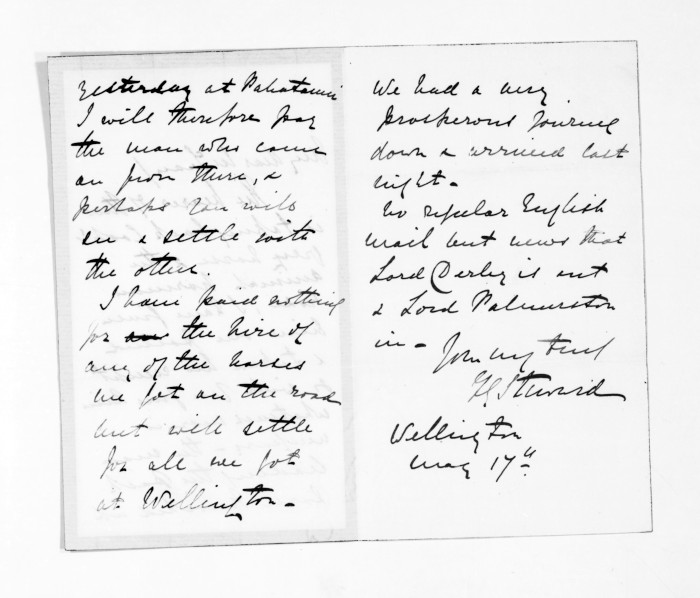 yesterday at Pahatanui
I will therefore pay
the man who came
on from there, &
perhaps you will
see & settle with
the other.
I have paid nothing
for the hire of
any of the horses
we got on the road
but will settle
for all we got
at Wellington -
We had a very
prosperous journey
down & arrived last
night -
No regular English
mail but news that
Lord Derby is out
& Lord Palmerston
in -
Yours very truly
Wellington
May 17th